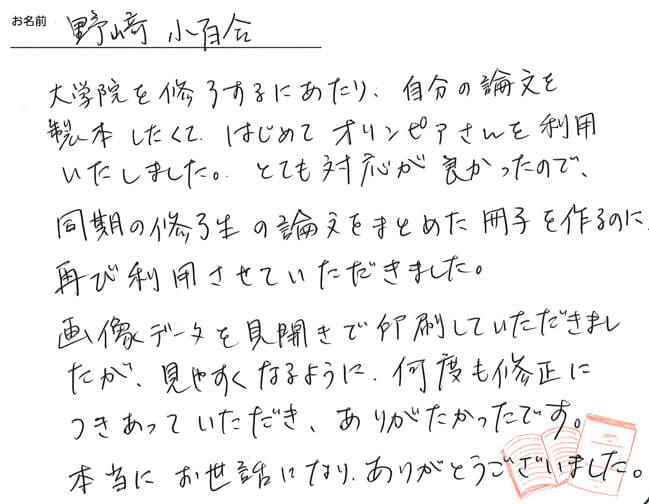 お名前 野﨑 小百合
大学院を修了するにあたり、自分の論文を
製本したくて、はじめてオリンピアさんを利用
いたしました。とても対応が良かったので、
同期の修了生の論文をまとめた冊子を作るのに、
再び利用させていただきました。
画像データを見開きで印刷していただきまし
たが、見やすくなるように、何度も修正に
つきあっていただき、ありがたかったです。
本当にお世話になり、ありがとうございました。